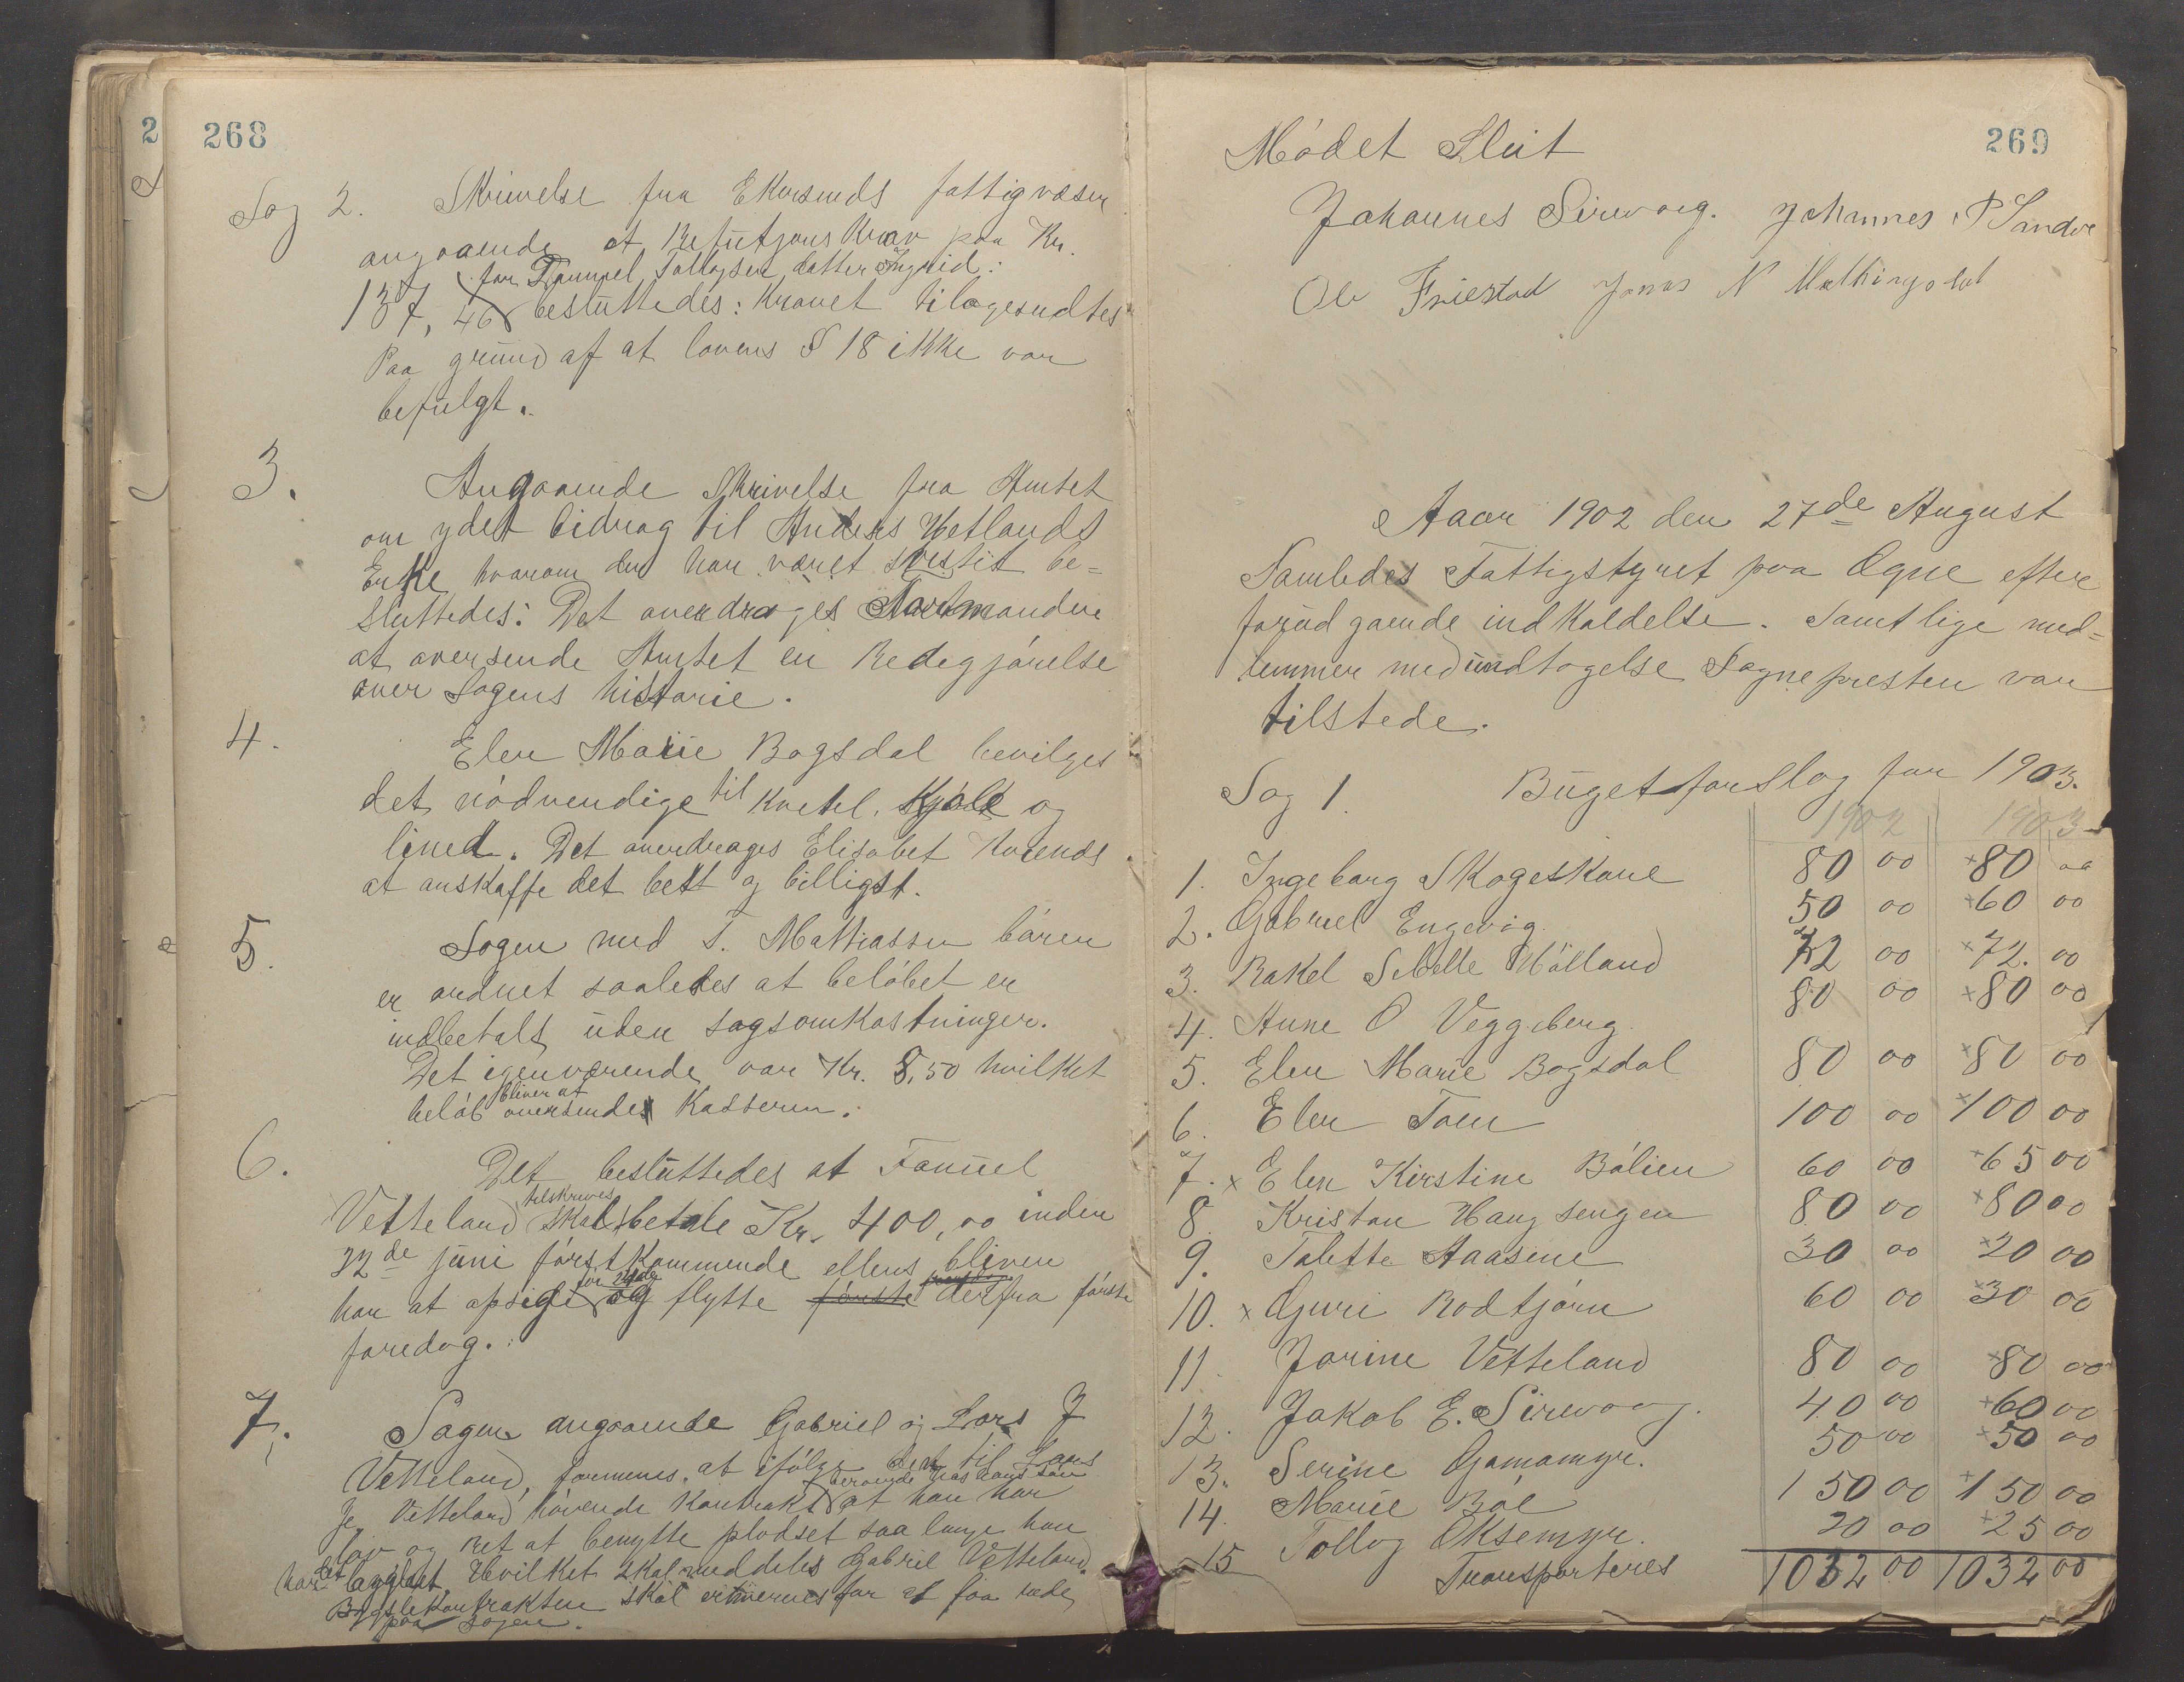 268
Sag 2. Skrivelse fra Ekersunds fattigvæsen
angaaende et Refutjons Krav paa Kr.
for Samuel Tollagsen datter Ingrid:
137,46 besluttedes: Kravet tilbagesendtes
Paa grund af at lovens § 18 ikke var
befulgt.
3. Angaaende Skrivelse fra Amtet
om ydet bidrag til Anders Hetlands
Enke hvorom der har været tvistit be=
sluttedes: Det overdrages Formanden
at oversende Amtet en Redegjørelse
over Sagens historie.
4. Elen Marie Bogsdal bevilges
det nødvendige til Kvehl. Kjole og
lined. Det overdrages Elisabet
at anskaffe det bett og billigst.
5. Sagen med T. Mattiassen båren
er ordnet saaledes at beløbet er
indbetalt uden sagsomkostninger.
Det igenværende var Kr. 8,50 hvilket
bliver at
beløb oversendes Kasseren.
6. Det besluttedes at Samuel
tilskrives
Vetteland skal betale Kr. 400,00 inden
22de juni førstkommende ellers bliver
han at opsige og flytte første derfra første
faredag.
7. Sagen angaaende Gabriel og Lars J
Vetteland, formenes, at ifølge den til Lars
beroende hos hans søn
J. Vetteland havende Kontrakt at han har
lov og ret at benytte pladset saa længe han
har det bygslet. Hvilket skal meddeles Gabriel Vetteland.
Bygslekontrakten skal erhverves for at faa rede
paa sagen.
269
Mødet Slut
Johannes Sirevaag. Johannes P Sandve
Ole Friestad Jonas N Malthingslal
Aaar 1902 den 27de August
Samledes Fattigstyret paa Ogne efter
forudgaende indkaldelse. Samtlige med=
lemmer med undtagelse Sognepresten var
tilstede.
Sag 1. Bugetforslag for 1903.
1902 1903
1. Ingeborg Skogeskone 80 00 +80 00
2. Gabriel Engevig 50 00 +60 00
3. Rakel Sibelle Hålland 72 00 +72. 00
4. Anne O Veggeberg 80 00 +80 00
5. Elen Marie Bogsdal 80 00 +80 00
6. Elen Toen 100 00 +100 00
7. x Elen Kirstine Bålien 60 00 +65 00
8. Kristan Haugsengen 80 00 +80 00
9. Tolette Aaasene 30 00 +20 00
10. x Guri Rodtjørn 60 00 +30 00
11. Jorine Vetteland 80 00 +80 00
12. Jakob E. Sirevaag. 40 00 +60 00
13. Serine Gamamyr. 50 00 +50 00
14. Marie Bøe 150 00 +150 00
15 Tollag Oksemyr. 20 00 +25 00
Transporteres 1032 00 1032 00